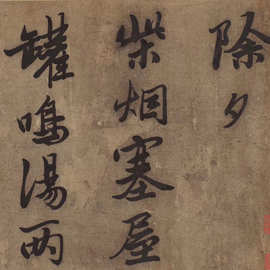 除夕
柴烟塞屋
罐鳴湯兩